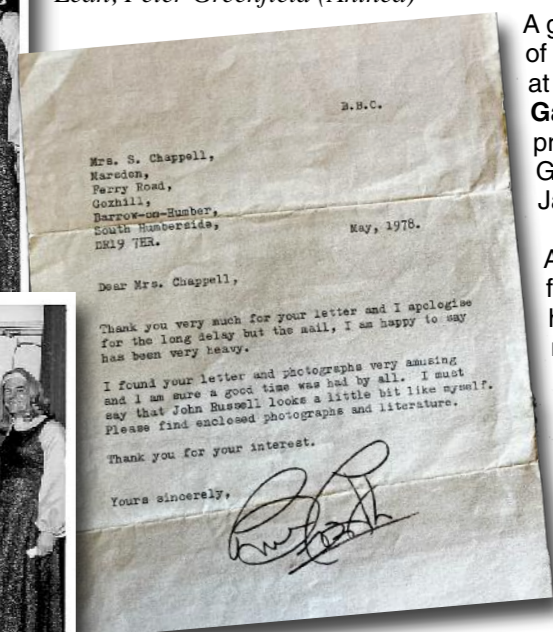 Lean, Peter Greenfield (Ahmed)
B.B.C.
Mrs. S. Chappell,
Marsden,
Ferry Road,
Goxhill,
Barrow-on-Humber,
South Humberside,
DR19 7HR.
May, 1978.
Dear Mrs. Chappell,
Thank you very much for your letter and I apologise
for the long delay but the mail, I am happy to say
has been very heavy.
I found your letter and photographs very amusing
and I am sure a good time was had by all. I must
say that John Russell looks a little bit like myself.
Please find enclosed photographs and literature.
Thank you for your interest.
Yours sincerely,
A g
of
at
Ga
pr
G
Ja
A
f
h